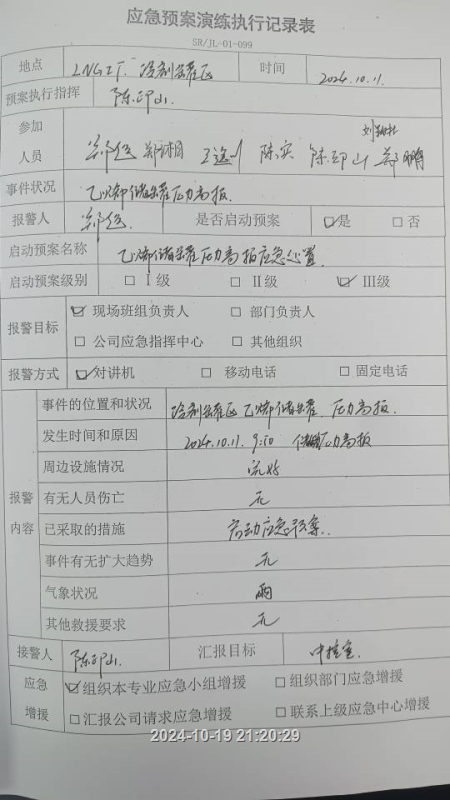 应急预案演练执行记录表
SR/JL-01-099
地点 LNG工厂 冷剂罐区 时间 2024.10.11.
预案执行指挥 陈印山.
参加人员 陈实 陈印山
事件状况 乙烯储罐压力高报.
报警人 是否启动预案 ☑是 □否
启动预案名称 乙烯储罐压力高报应急处置
启动预案级别 □Ⅰ级 □Ⅱ级 ☑Ⅲ级
报警目标 ☑现场班组负责人 □部门负责人
□公司应急指挥中心 □其他组织
报警方式 ☑对讲机 □移动电话 □固定电话
报警内容 事件的位置和状况 冷剂罐区乙烯储罐 压力高报.
发生时间和原因 2024.10.11. 9:50 压力高报
周边设施情况 完好
有无人员伤亡 无
已采取的措施 启动应急预案.
事件有无扩大趋势 无
气象状况 雨
其他救援要求 无
接警人 陈印山. 汇报目标 中控室
应急增援 ☑组织本专业应急小组增援 □组织部门应急增援
□汇报公司请求应急增援 □联系上级应急中心增援
2024-10-19 21:20:29